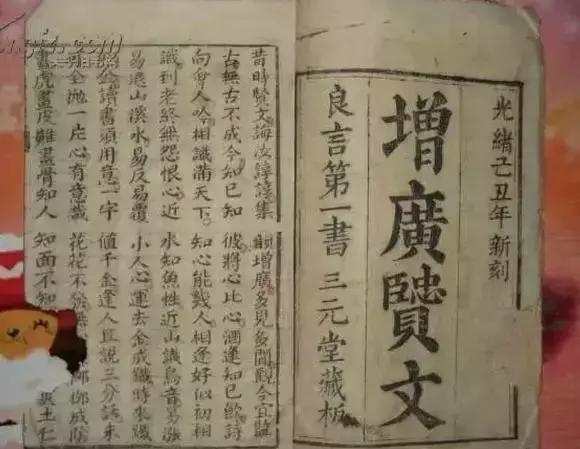 光緒己丑年新刻
增廣賢文
良言第一書 三元堂藏板
昔時賢文誨汝諄諄集韻增廣多見多聞觀今宜監
古無古不成今知已知彼將心比心酒逢知已飲詩
向會人吟相識滿天下知心能幾人相逢好似初相
識到老終無怨恨心近水知魚性近山識鳥音易漲
易退山溪水易反易覆小人心運去金成鐵時來鐵
似金讀書須用意一字值千金逢人且說三分話未
可全拋一片心有意栽花花不發無柳成陰
畫虎畫皮難畫骨知人知面不知土仁